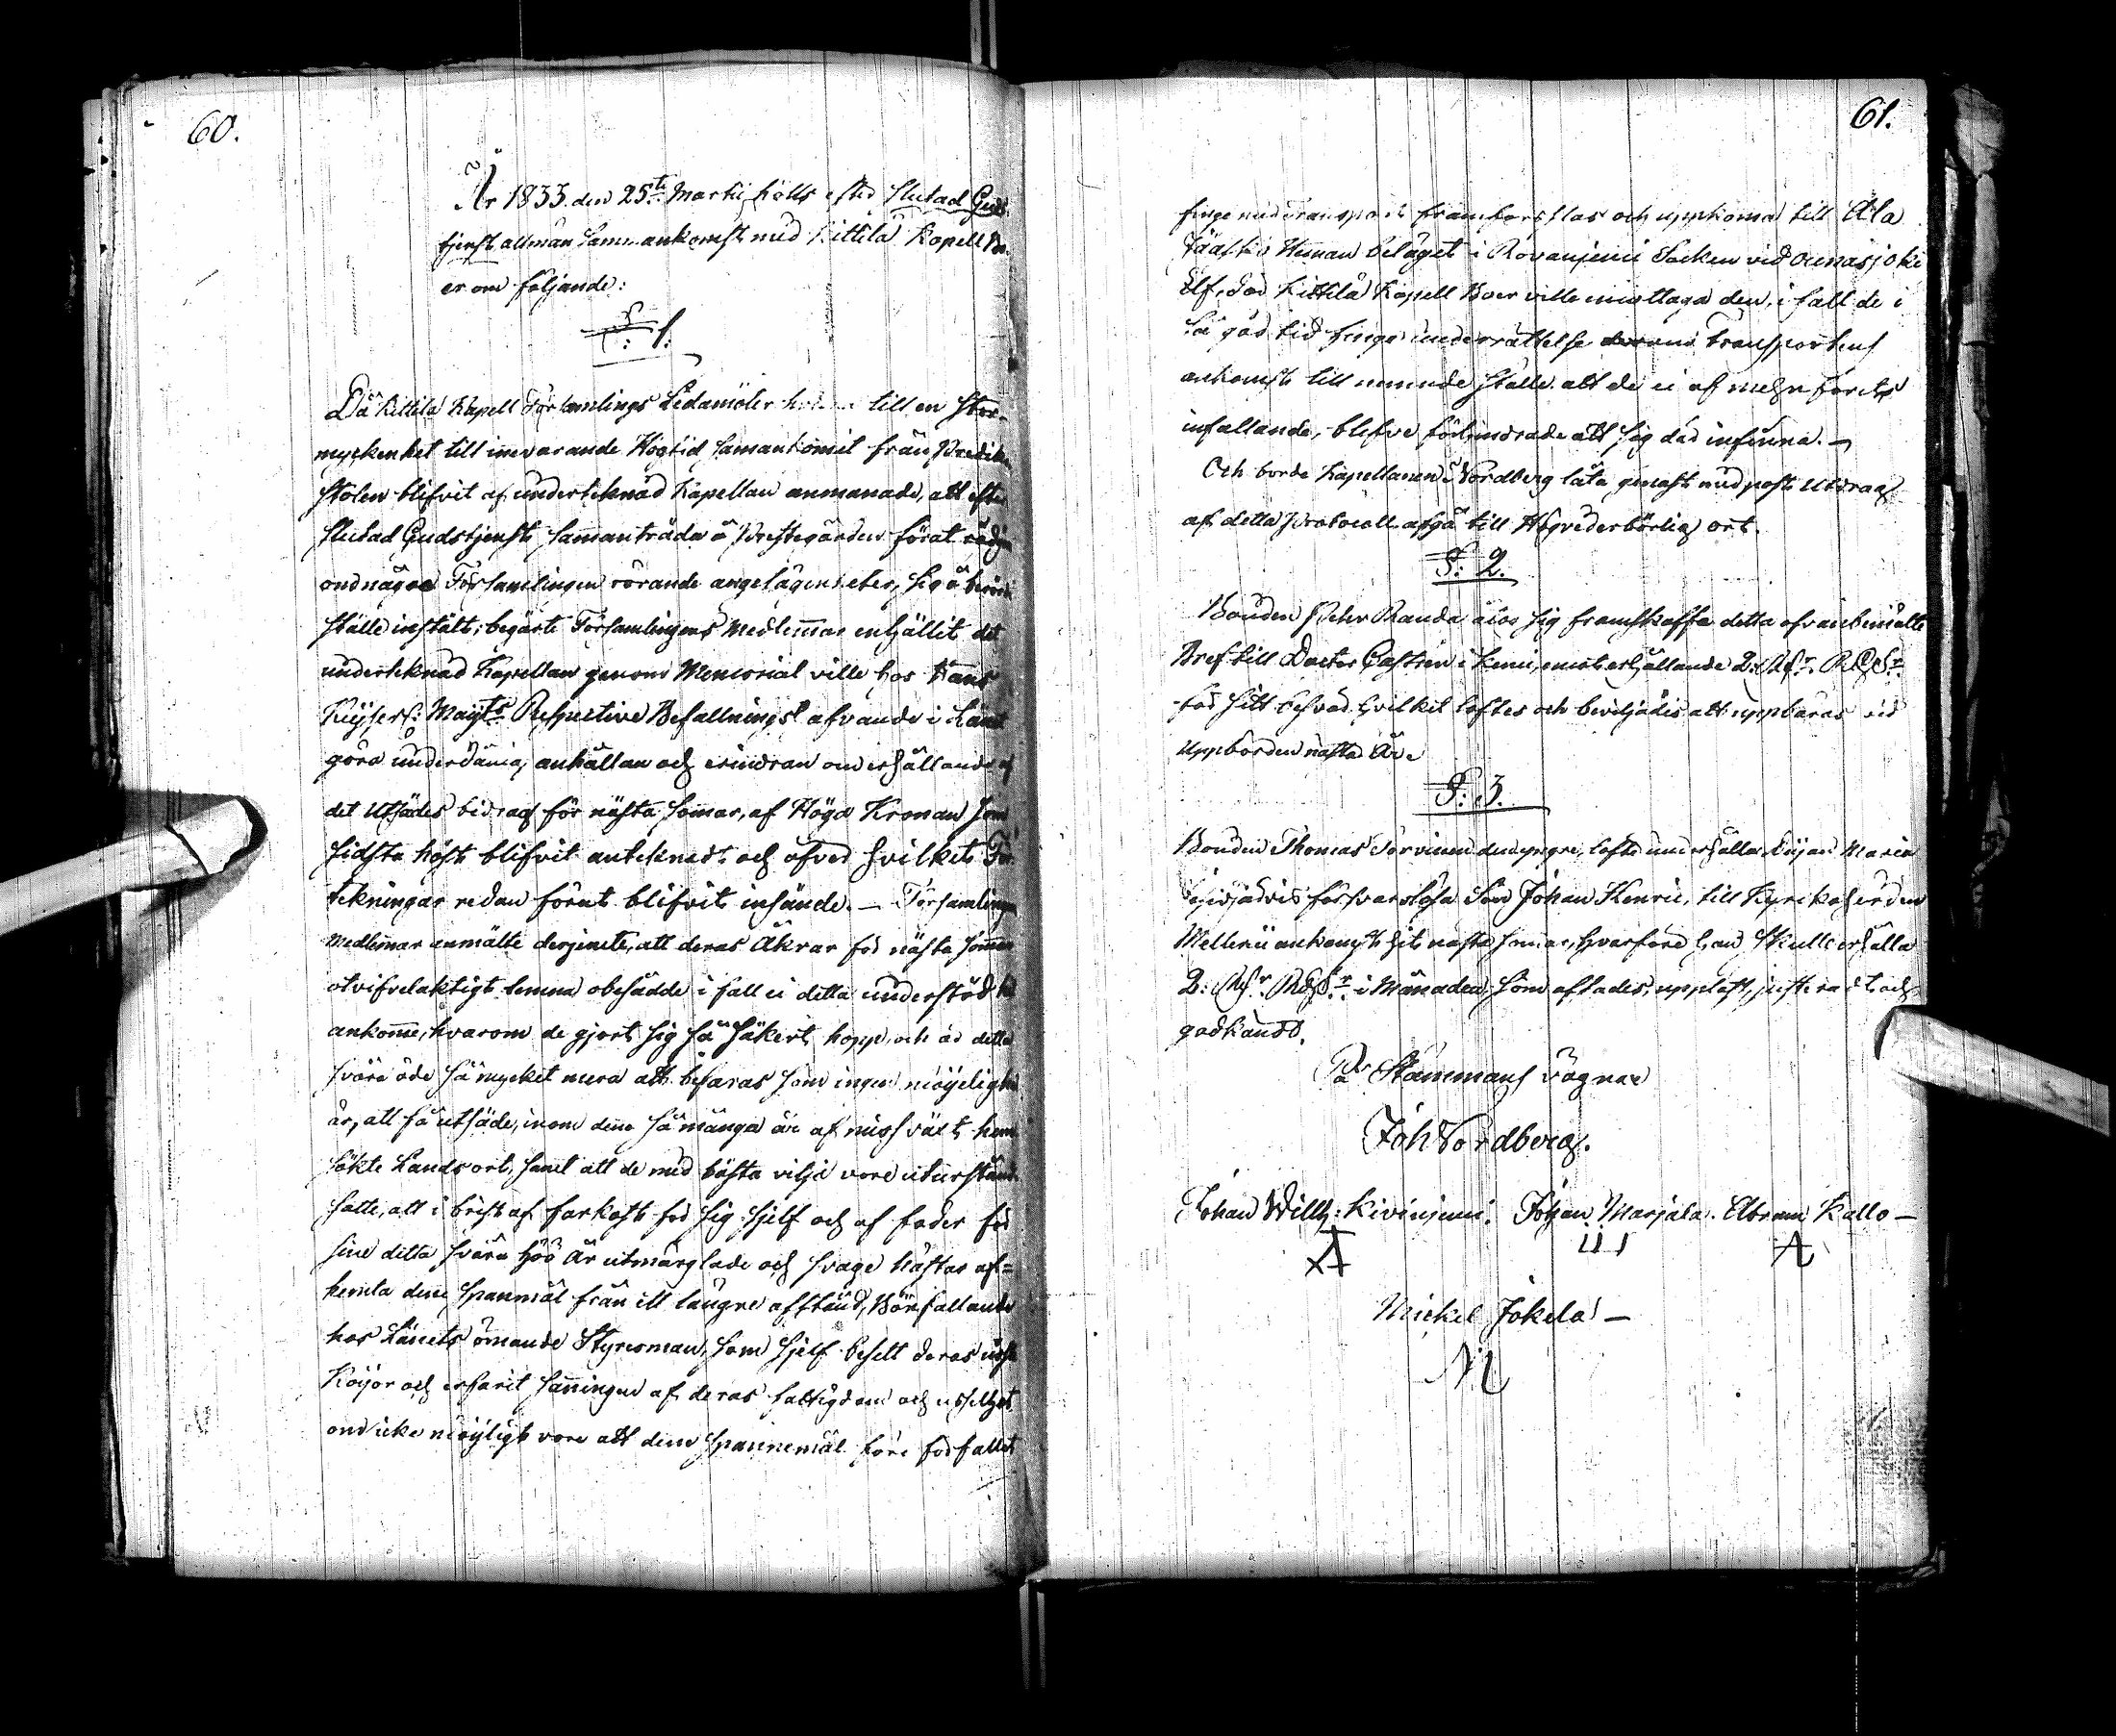 60.
År 1833. den 25te Martii hölls efter slutad Guds-
tjenst allmän Sammankomst med Kittilä Kapell Bo-
er om följande:
§: 1.
Då Kittilä Kapell Församlings Ledamöter till en stor
myckenhet till innevarande Högtid Samankommit från Predik
stolen blifvit af underteknad Kapellan anmanade, att efter
slutad Gudstjenst, sammanträda å Prestegården förat rådgö
om några Församlingen rörande angelägenheter, sig å berörde
ställe inställt; begärte Församlingens Medlemmar enhällit det
underteknad Kapellan genom Memorial ville hos Hans
Kejserl: Maijts Respective Befallningshafvande i Länet
göra underdånig anhållan och erindran om erhållande af
det Utsädes bidrag för nästa Sommar, af Höga Kronan som
sidsta höst blifvit anteknadt och öfver hvilket För-
tekningar redan förut blifvit insände. — Församlingens
Medlemmar anmälte derjemte, att deras Åkrar för nästa Sommar
otvifvelaktigt lemna obesådde i fall ei detta understöd
ankomme, hvarom de gjort sig så säkert hopp, och är detta
svåra öde så mycket mera att befaras som ingen möjelighet
är, att få utsäde, inom denna så många år af missväxt hem
sökte Landsort, samt att de med bästa vilja vore uturstånd
satte, att i brist af farkost för sig sjelf och af foder för
sine detta svåra Höö År utmärglade och svage hästar af-
hemta denne Spanmål från ett längre afstånd, Bönfallande
hos Länets ömande Styresman, som sjelf besett deras usla
Kojor och erfarit sanningen af deras fattigdom och uselhet
om icke möjligt vore att denne Spannemål före förfallet
61.
finge med transport framforslas och uppkoma till Ala
Jääskö Hemman beläget i Rovaniemi Socken vid Ounasjoki
Elf, der Kittilä Kapell Boer ville emottaga den, i fall de i
så god tid finge underrättelse om Transportens
ankomst till nämnde ställe att de ei af menförets
infallande, blefve förhindrade att sig där infinna. —
Och borde Kapellanen Nordberg låta genast med post Utdrag
af detta Protocoll afgå till Högvederbörlig ort.
§: 2.
Bonden Peter Rauda åtog sig framskaffa detta ofvanbemälte
Bref till Doctor Castrén i Kemi, emot erhållande 2: Rbr. R.S:r
för sitt besvär hvilket loftes och beviljades att uppbäras vid
Uppbörden nästa År.
§: 3.
Bonden Thomas Torvinen den yngre, lofte underhålla Pijan Maria
försvarslösa Son Johan Henric, till Kyrkoherden
Mellenii ankomst hit nästa Sommar, hvarföre han skulle erhålla
2: Rbr. R.S:r i Månaden, som aftades, uppläst, justeradt och
godkändt.
På Stämmans vägnar
Joh Nordberg.
Johan Willh: Kiviniemi. Johan Marjala. Abram Kallo —
Mickel Jokela —